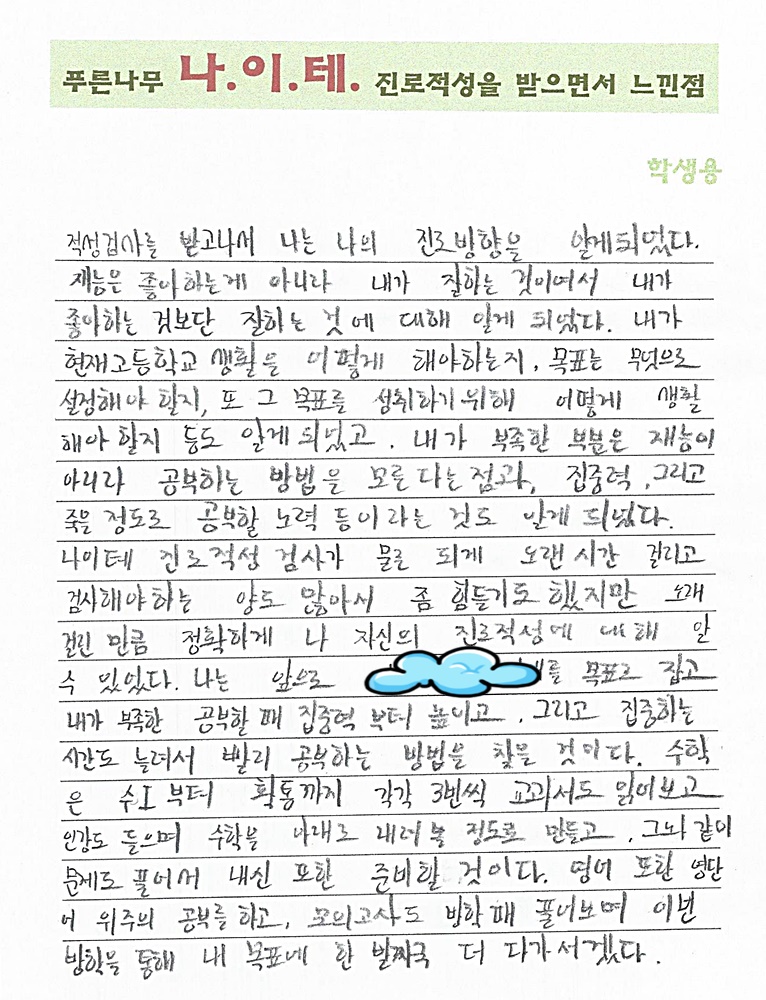 푸른나무 나.이.테. 진로적성을 받으면서 느낀점
학생용
적성검사를 받고나서 나는 나의 진로방향을 알게되었다.
재능은 좋아하는게 아니라 내가 잘하는 것이여서 내가
좋아하는 것보단 잘하는 것에 대해 알게 되었다. 내가
현재고등학교 생활을 어떻게 해야하는지, 목표는 무엇으로
설정해야 할지, 또 그 목표를 성취하기위해 어떻게 생활
해야 할지 등도 알게 되었고, 내가 부족한 부분은 재능이
아니라 공부하는 방법을 모른다는점과, 집중력, 그리고
죽을 정도로 공부할 노력 등이라는 것도 알게 되었다.
나이테 진로적성 검사가 물론 되게 오랜시간 걸리고
검사해야하는 양도 많아서 좀 힘들기도 했지만 오래
걸린 만큼 정확하게 나 자신의 진로적성에 대해 알
수 있었다. 나는 앞으로 를 목표로 잡고
내가 부족한 공부할때 집중력 부터 높이고, 그리고 집중하는
시간도 늘려서 빨리 공부하는 방법을 찾을 것이다. 수학
은 수I부터 확통까지 각각 3번씩 교과서도 읽어보고
인강도 들으며 수학을 아래로 내려놓 정도로 만들고, 그와 같이
문제도 풀어서 내신 또한 준비할 것이다. 영어 또한 영단
어 위주의 공부를 하고, 모의고사도 방학때 풀어보며 이번
방학을 통해 내 목표에 한 발짜국 더 다가서겠다.